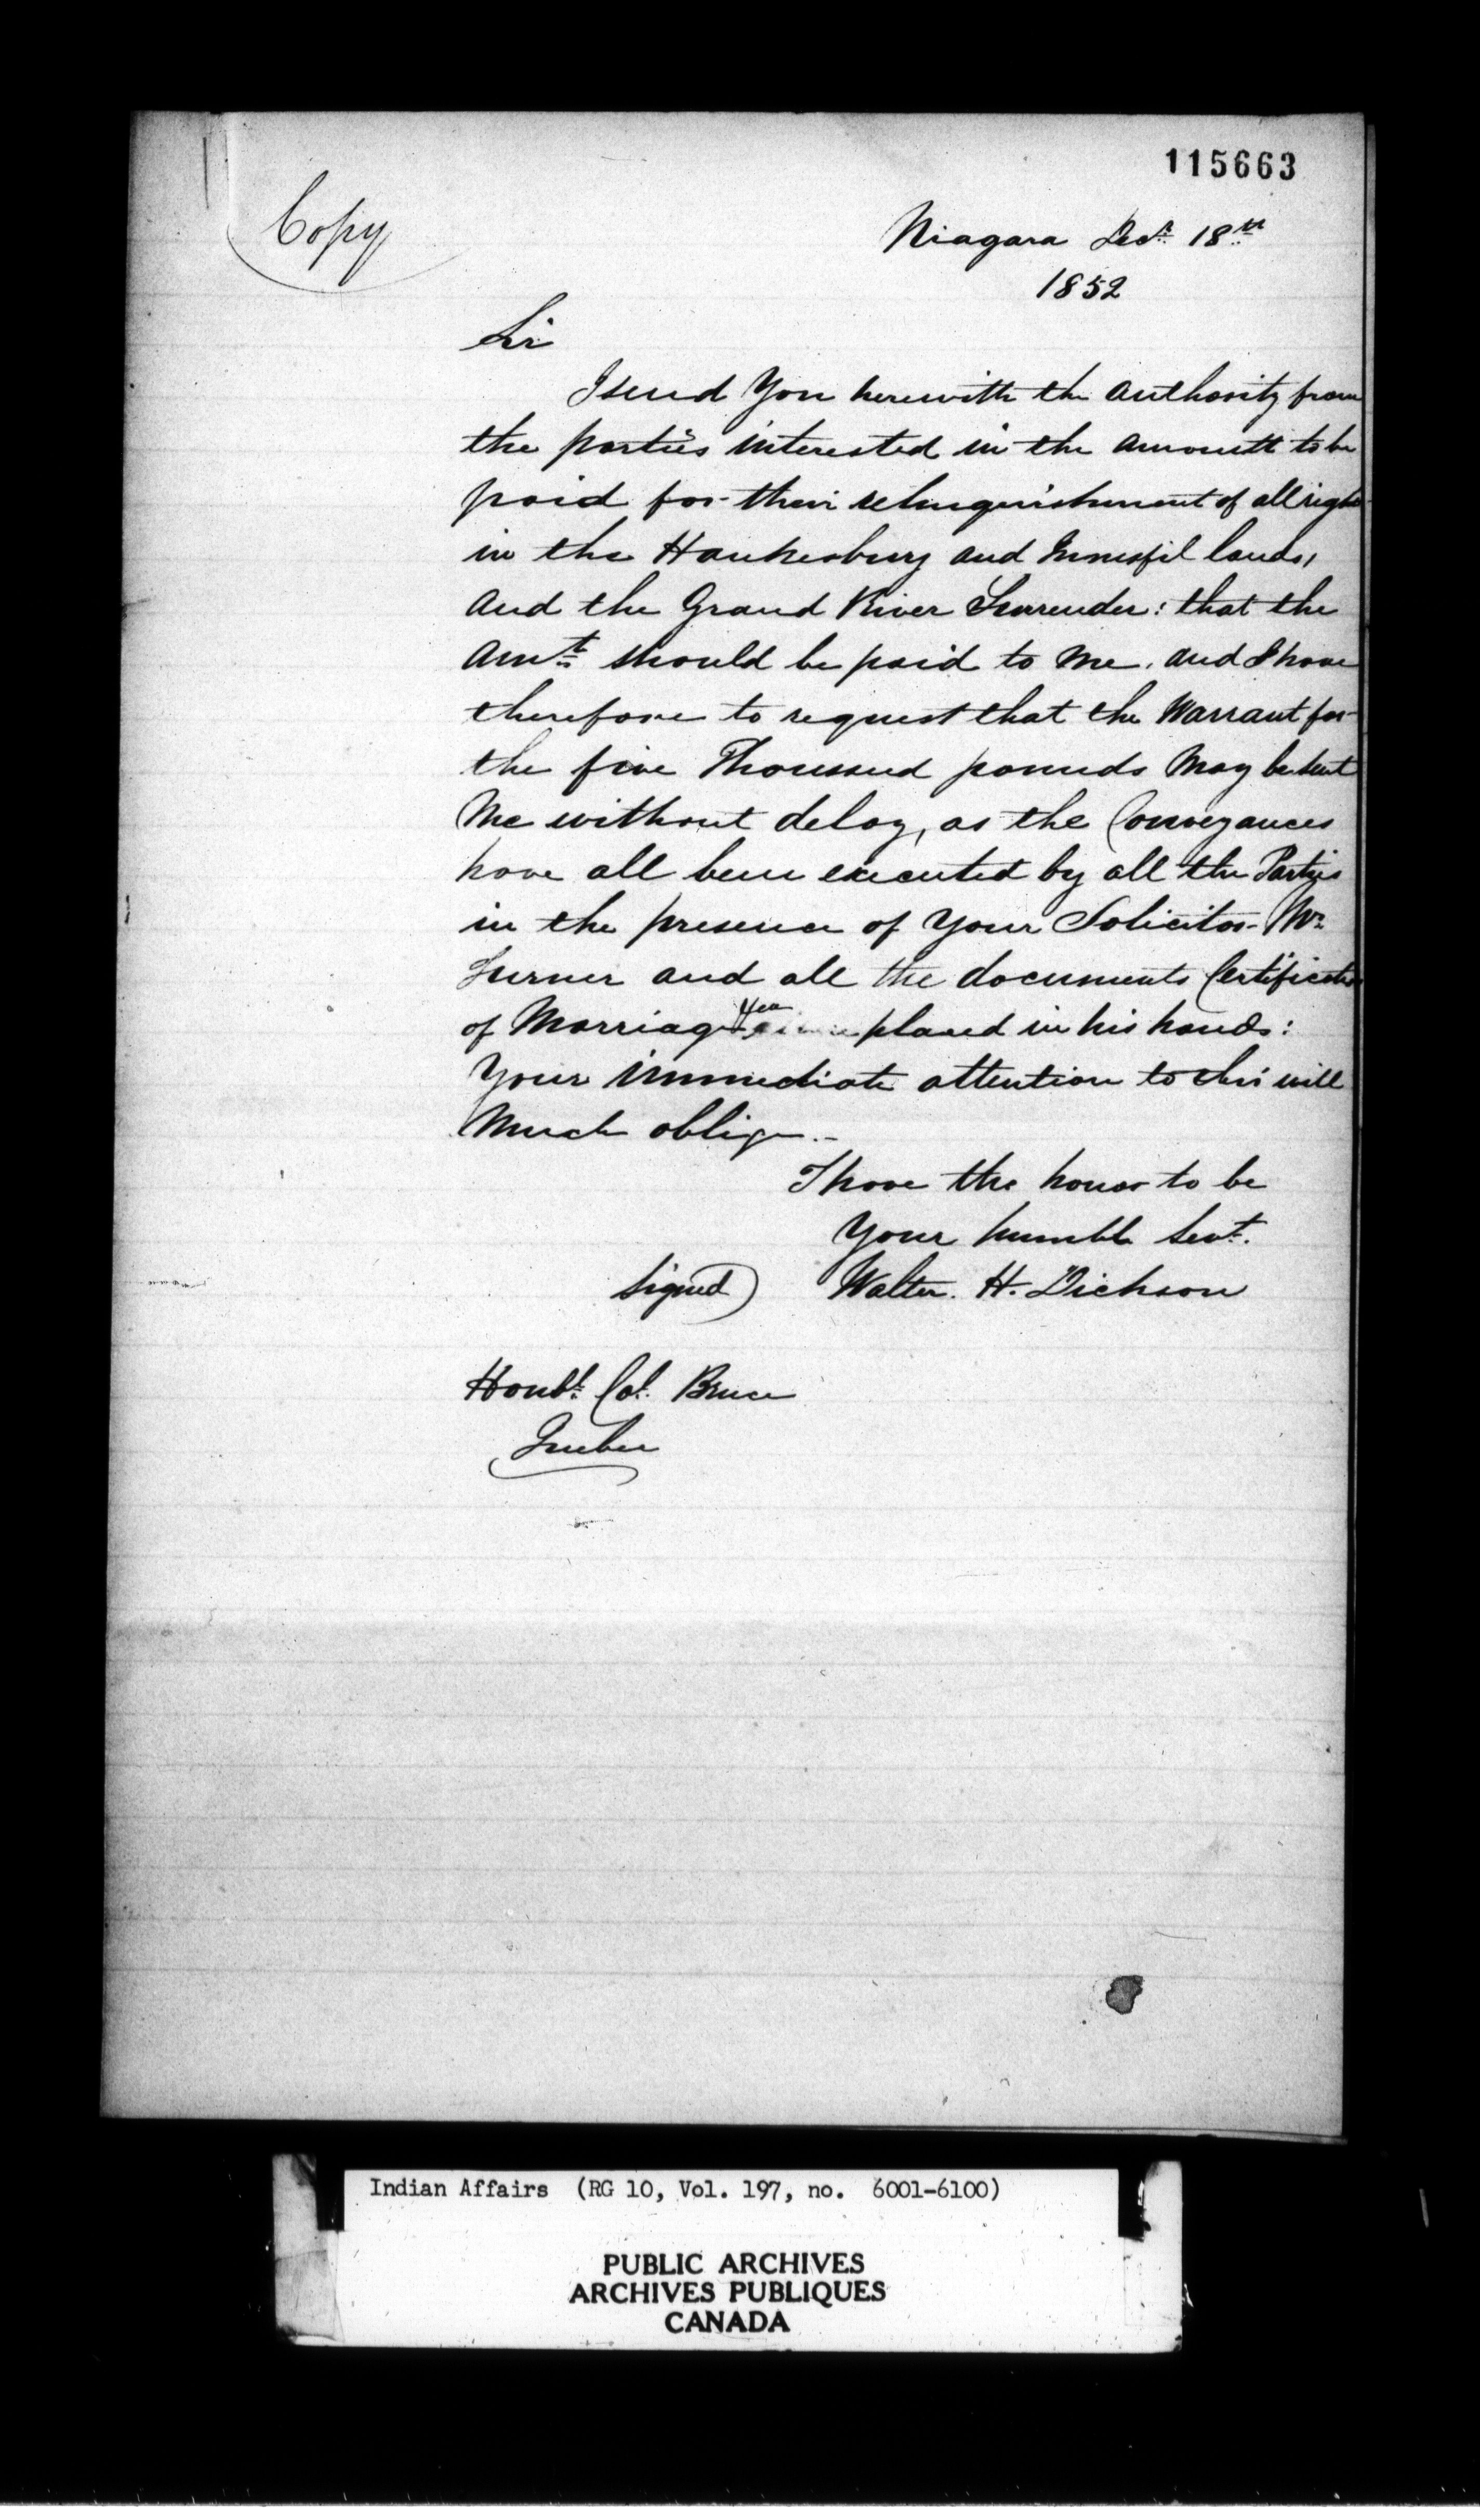 115663
Copy
Niagara Decr. 18th
1852
Sir
I send You herewith the authority from
the parties interested in the amountt to be
paid for their relinquishment of all right
in the Hawkesbury and Innisfil lands,
and the Grand River Surrender: that the
Amt. should be paid to me, and I have
therefore to request that the Warrant for
the five Thousand pounds may be sent
Me without delay, as the Conveyances
have all been executed by all the Parties
in the presence of Your Solicitor Mr.
Turner and all the documents Certificates
of Marriage &ca placed in his hands:
Your immediate attention to this will
Much oblige.-
I have the honor to be
Your humble Sevt.
Signed) Walter. H. Dickson
Honble. Col. Bruce
Quebec
Indian Affairs (RG 10, Vol. 197, no. 6001-6100)
PUBLIC ARCHIVES
ARCHIVES PUBLIQUES
CANADA